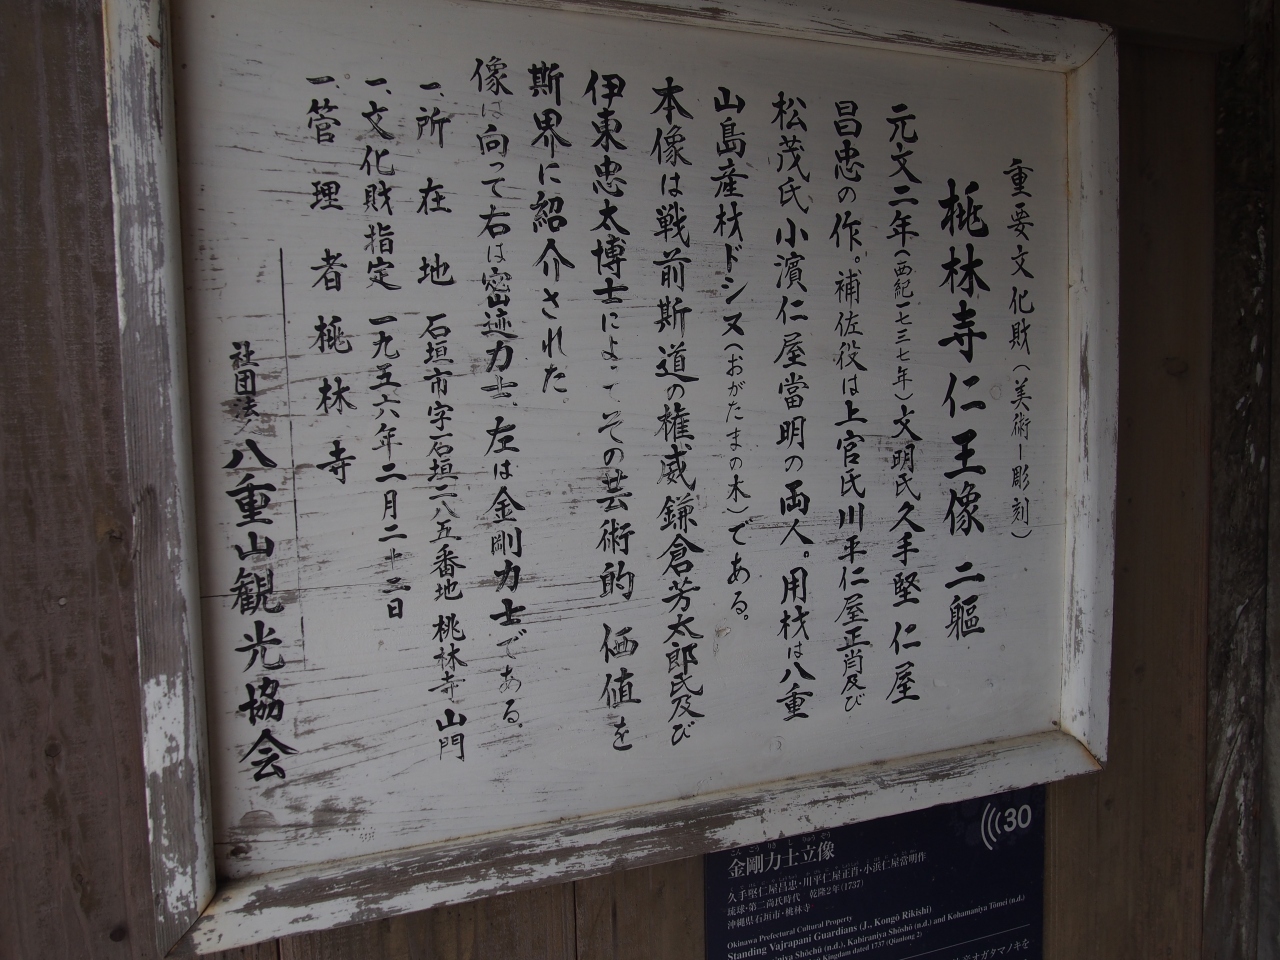 重要文化財(美術ー彫刻)
桃林寺仁王像 二軀
元文二年(西紀一七三七年)文明氏久手堅仁屋
昌忠の作。補佐役は上官氏川平仁屋正肖及び
松茂氏小濱仁屋當明の両人。用材は八重
山島産材ドシヌ(おがたまの木)である。
本像は戦前斯道の権威鎌倉芳太郎氏及び
伊東忠太博士によってその芸術的 価値を
斯界に紹介された。
像は向って右は密迹力士、左は金剛力士である。
一、所 在 地 石垣市字石垣二八五番地 桃林寺山門
一、文化財指定 一九五六年二月二十二日
一、管 理 者 桃 林 寺
社団法人 八重山観光協会
30
こんごうりきしりゅうぞう
金剛力士立像
久手堅仁屋昌忠・川平仁屋正肖・小浜仁屋當明作
琉球・第二尚氏時代 乾隆2年(1737)
沖縄県石垣市・桃林寺
Okinawa Prefectural Cultural Property
Standing Vajrapani Guardians (J., Kongō Rikishi)
Shōchū (n.d.), Kabiraniya Shōshō (n.d.) and Kohamaniya Tōmei (n.d.)
Kingdom dated 1737 (Qianlong 2)
オガタマノキを